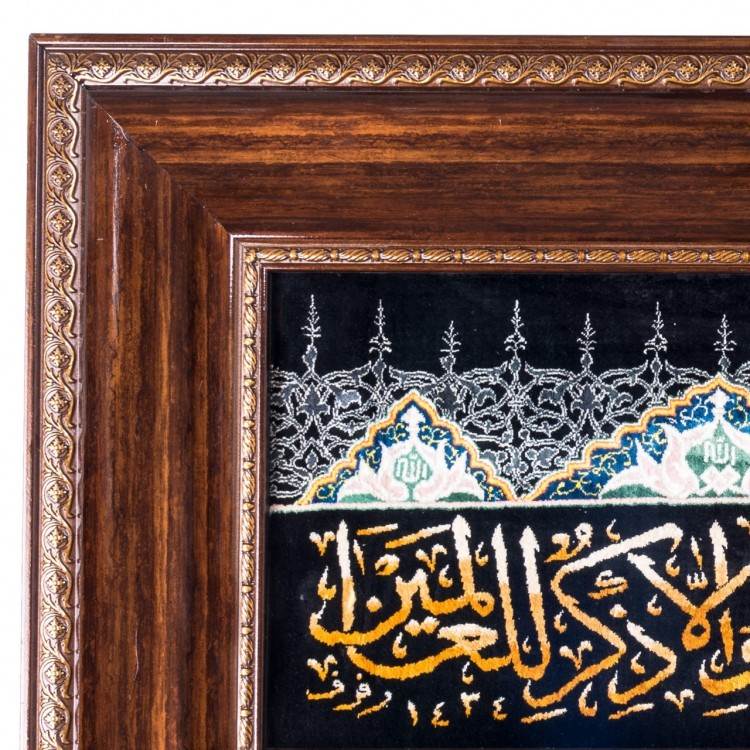 الله الله
إلا ذكر للعالمين
١٤٣٤